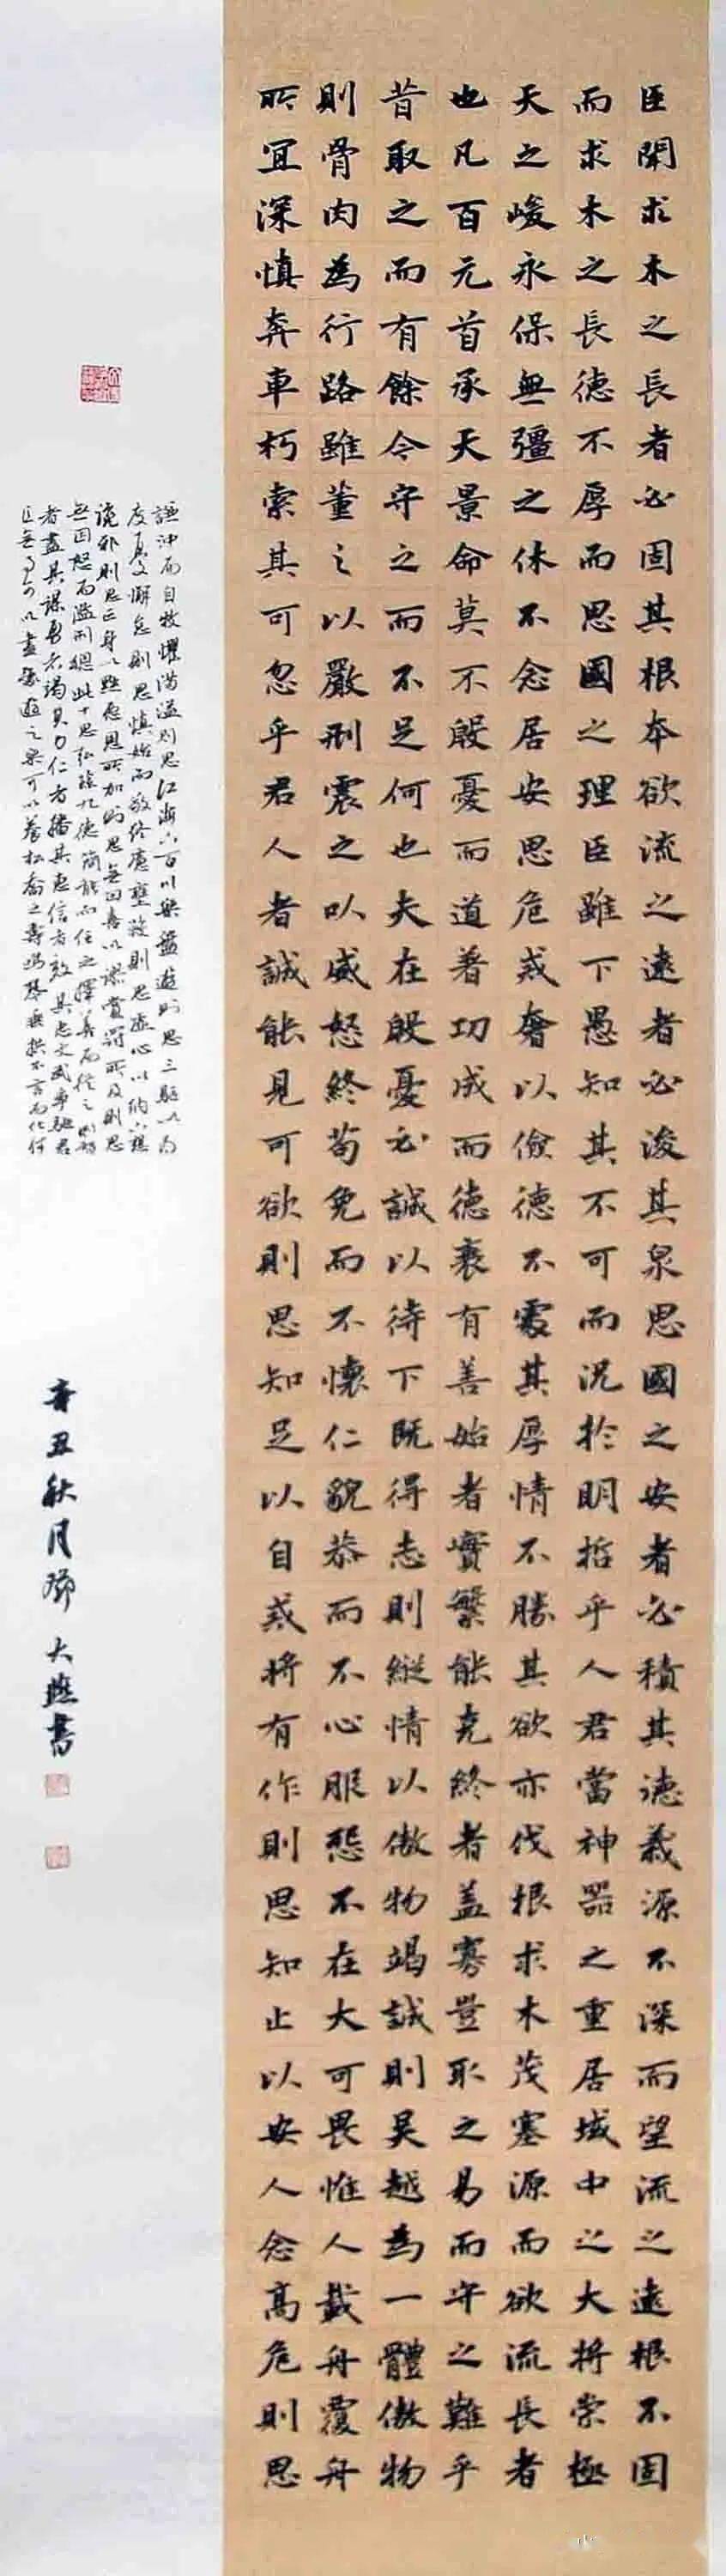 臣聞求木之長者必固其根本欲流之遠者必浚其泉思國之安者必積其德義源不深而望流之遠根不固
而求木之長德不厚而思國之理臣雖下愚知其不可而況於明哲乎人君當神器之重居域中之大將崇極
天之峻永保無疆之休不念居安思危戒奢以儉德不處其厚情不勝其欲亦伐根求木茂塞源而欲流長者
也凡百元首承天景命莫不殷憂而道著功成而德衰有善始者實繁能克終者蓋寡豈取之易而守之難乎
昔取之而有餘今守之而不足何也夫在殷憂必誠以待下既得志則縱情以傲物竭誠則吴越為一體傲物
則骨肉為行路雖董之以嚴刑震之以威怒終苟免而不懷仁貌恭而不心服怨不在大可畏惟人載舟覆舟
所宜深慎奔車朽索其可忽乎君人者誠能見可欲則思知足以自戒將有作則思知止以安人念高危則思
謙沖而自牧懼滿溢則思江海下百川樂盤遊則思三驅以為
度憂懈怠則思慎始而敬終慮壅蔽則思虛心以納下想
讒邪則思正身以黜惡恩所加則思無因喜以謬賞罰所及則思
無因怒而濫刑總此十思弘茲九德簡能而任之擇善而從之則智
者盡其謀勇者竭其力仁者播其惠信者效其忠文武爭馳君
臣無事可以盡豫遊之樂可以養松喬之壽鳴琴垂拱不言而化何
辛丑秋月鄧大燕書